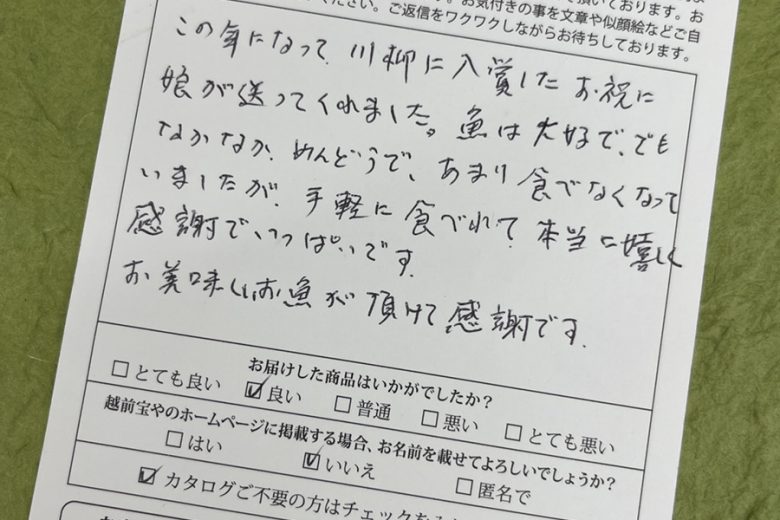 頂いております。お
ください。お気付きの事を文章や似顔絵などご自
。ご返信をワクワクしながらお待ちしております。
この年になって、川柳に入賞したお祝に
娘が送ってくれました。魚は大好で、でも
なかなか、めんどうで、あまり食べなくなって
いましたが、手軽に食べれて、本当に嬉しく
感謝でいっぱいです。
お美味しいお魚が頂けて感謝です。
お届けした商品はいかがでしたか?
□とても良い ☑良い □普通 □悪い □とても悪い
越前宝やのホームページに掲載する場合、お名前を載せてよろしいでしょうか?
□はい ☑いいえ □匿名で
☑カタログご不要の方はチェックを